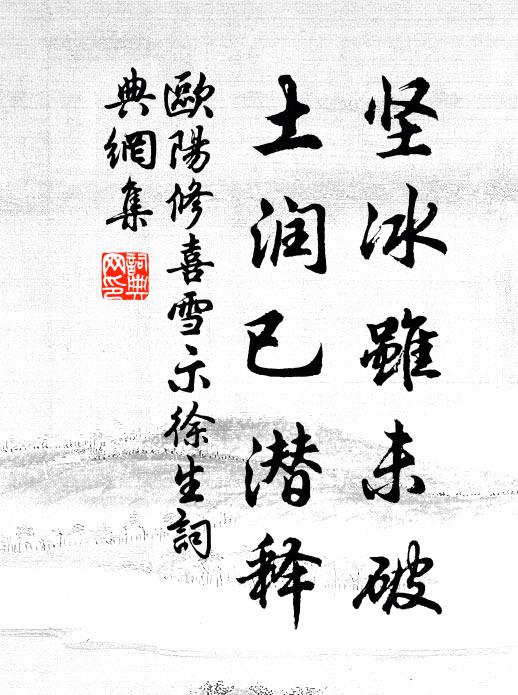 坚冰雖未破
土润已潜释
歐陽修喜雪示徐生詞
典網集
詞典
网印